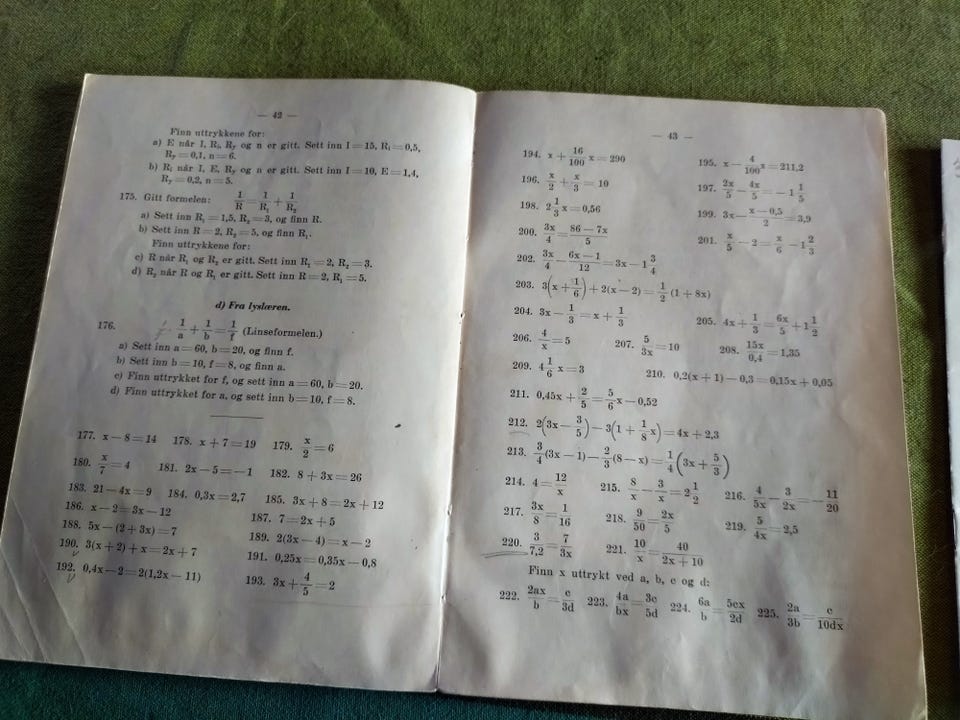 — 42 —
Finn uttrykkene for:
a) E når I, Rᵢ, Rᵧ og n er gitt. Sett inn I = 15, Rᵢ = 0,5,
Rᵧ = 0,1, n = 6.
b) Rᵢ når I, E, Rᵧ og n er gitt. Sett inn I = 10, E = 1,4,
Rᵧ = 0,2, n = 5.
175. Gitt formelen: 1/R = 1/R₁ + 1/R₂
a) Sett inn R₁ = 1,5, R₂ = 3, og finn R.
b) Sett inn R = 2, R₂ = 5, og finn R₁.
Finn uttrykkene for:
c) R når R₁ og R₂ er gitt. Sett inn R₁ = 2, R₂ = 3.
d) R₂ når R og R₁ er gitt. Sett inn R = 2, R₁ = 5.
d) Fra lyslæren.
176. 1/a + 1/b = 1/f (Linseformelen.)
a) Sett inn a = 60, b = 20, og finn f.
b) Sett inn b = 10, f = 8, og finn a.
c) Finn uttrykket for f, og sett inn a = 60, b = 20.
d) Finn uttrykket for a, og sett inn b = 10, f = 8.
177. x − 8 = 14 178. x + 7 = 19 179. x/2 = 6
180. x/7 = 4 181. 2x − 5 = −1 182. 8 + 3x = 26
183. 21 − 4x = 9 184. 0,3x = 2,7 185. 3x + 8 = 2x + 12
186. x − 2 = 3x − 12 187. 7 = 2x + 5
188. 5x − (2 + 3x) = 7 189. 2(3x − 4) = x − 2
190. 3(x + 2) + x = 2x + 7 191. 0,25x = 0,35x − 0,8
192. 0,4x − 2 = 2(1,2x − 11) 193. 3x + 4/5 = 2
— 43 —
194. x + 16/100 x = 290 195. x − 4/100 x = 211,2
196. x/2 + x/3 = 10 197. 2x/5 − 4x/5 = −1 1/5
198. 2 1/3 x = 0,56 199. 3x − (x − 0,5)/2 = 3,9
200. 3x/4 = (86 − 7x)/5 201. x/5 − 2 = x/6 − 1 2/3
202. 3x/4 − (6x − 1)/12 = 3x − 1 3/4
203. 3(x + 1/6) + 2(x − 2) = 1/2 (1 + 8x)
204. 3x − 1/3 = x + 1/3 205. 4x + 1/3 = 6x/5 + 1 1/2
206. 4/x = 5 207. 5/3x = 10 208. 15x/0,4 = 1,35
209. 4 1/6 x = 3 210. 0,2(x + 1) − 0,3 = 0,15x + 0,05
211. 0,45x + 2/5 = 5/6 x − 0,52
212. 2(3x − 3/5) − 3(1 + 1/8 x) = 4x + 2,3
213. 3/4 (3x − 1) − 2/3 (8 − x) = 1/4 (3x + 5/3)
214. 4 = 12/x 215. 8/x − 3/x = 2 1/2 216. 4/5x − 3/2x = − 11/20
217. 3x/8 = 1/16 218. 9/50 = 2x/5 219. 5/4x = 2,5
220. 3/7,2 = 7/3x 221. 10/x = 40/(2x + 10)
Finn x uttrykt ved a, b, c og d:
222. 2ax/b = c/3d 223. 4a/bx = 3c/5d 224. 6a/b = 5cx/2d 225. 2a/3b = c/10dx